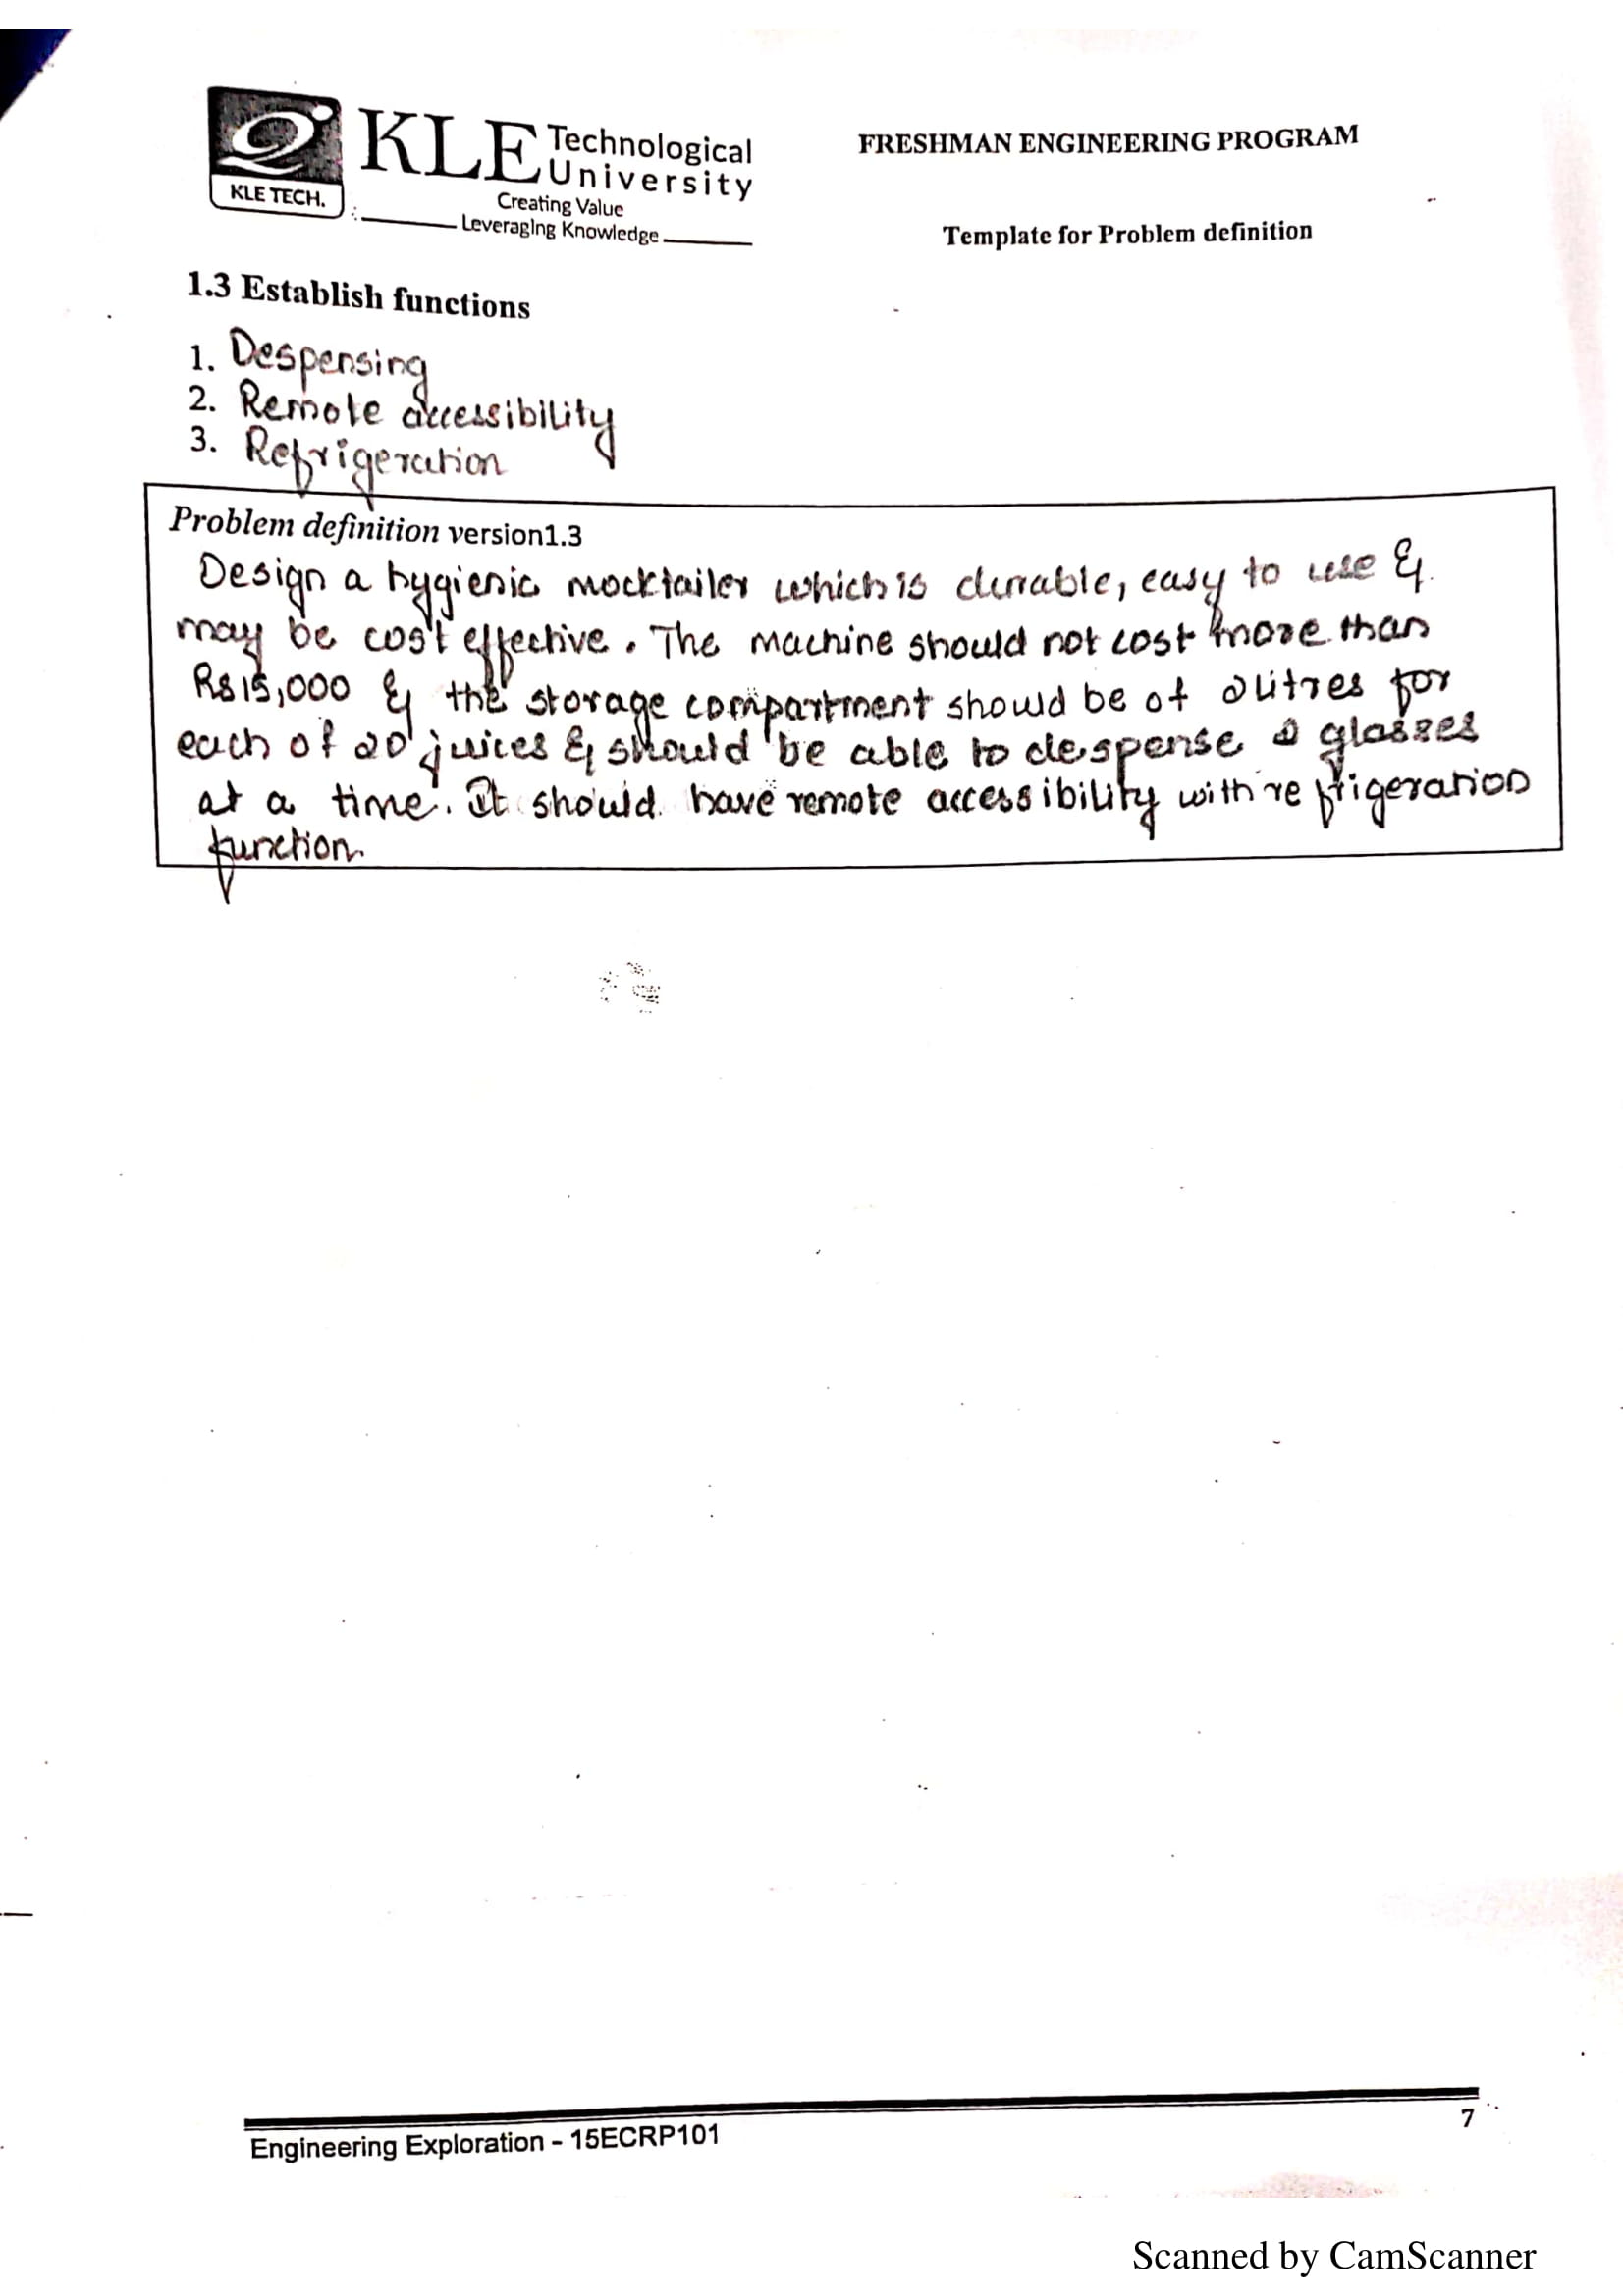 KLE TECH.
KLE Technological University
Creating Value
Leveraging Knowledge
FRESHMAN ENGINEERING PROGRAM
Template for Problem definition
1.3 Establish functions
1. Despensing
2. Remote accessibility
3. Refrigeration
Problem definition version1.3
Design a hygienic mocktailer which is durable, easy to use &
may be cost effective. The machine should not cost more than
Rs 15,000 & the storage compartment should be of 2 litres for
each of 20 juices & should be able to despense 2 glasses
at a time. It should have remote accessibility with refrigeration
function.
Engineering Exploration - 15ECRP101
7
Scanned by CamScanner